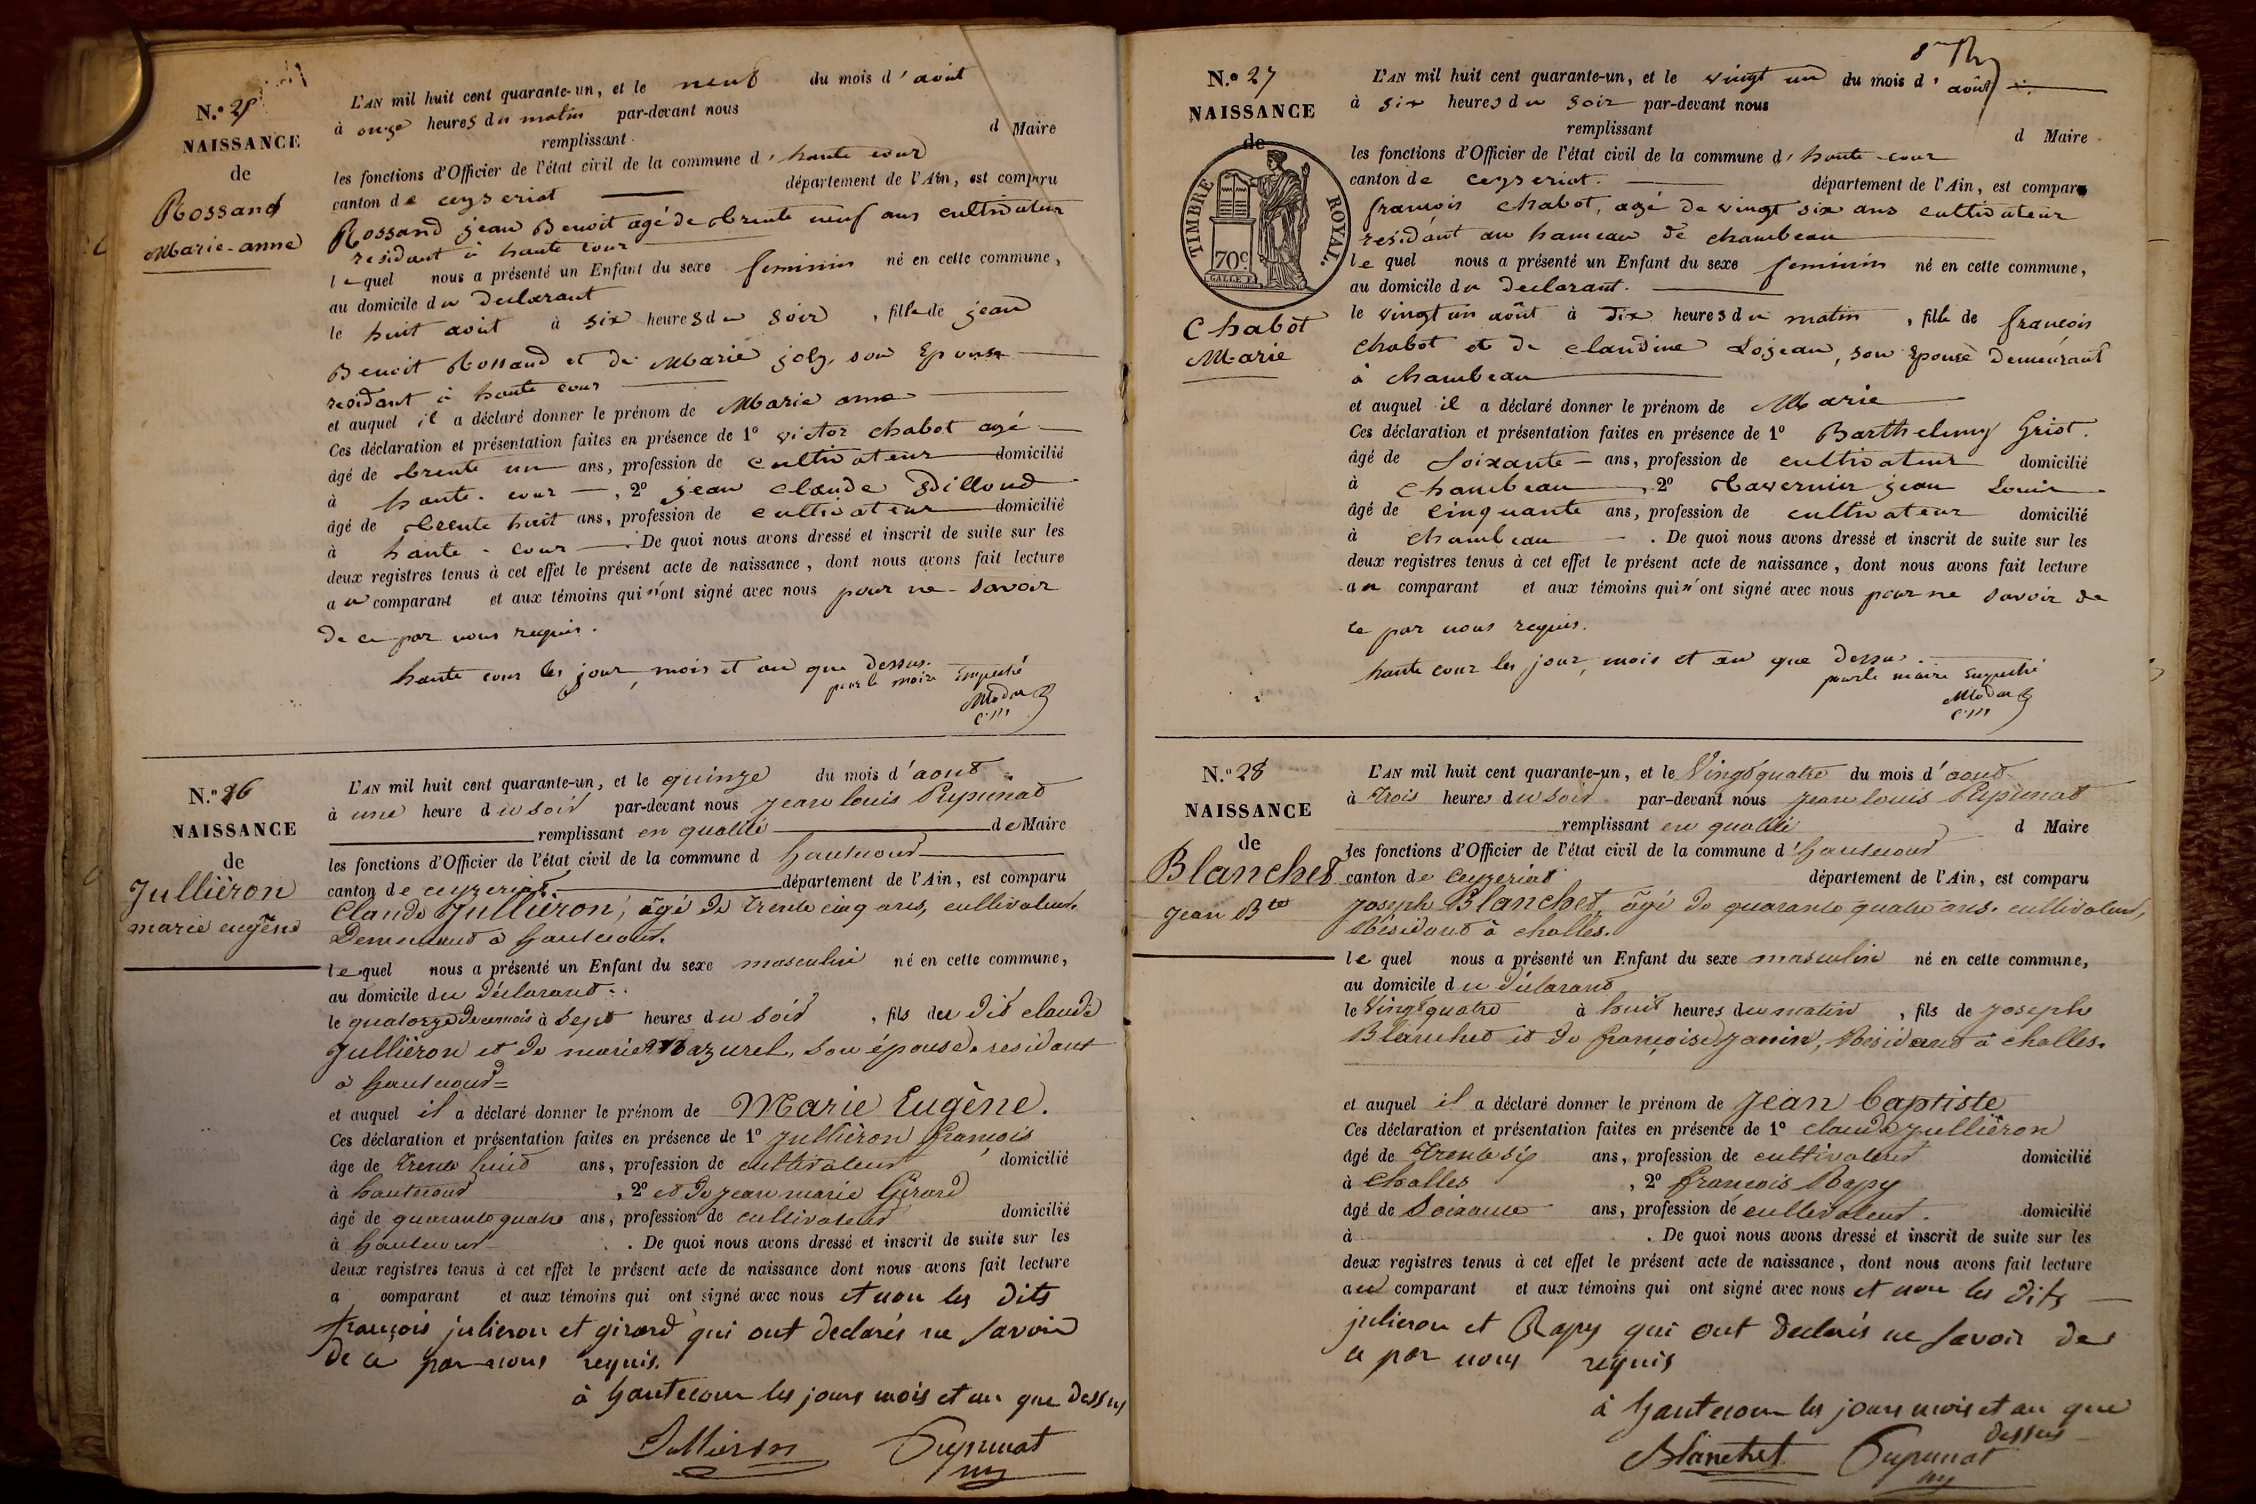 N.º 25
NAISSANCE
de
Rossand
Marie-anne
L'AN mil huit cent quarante-un, et le neuf du mois d'août
à onze heures du matin par-devant nous
remplissant d Maire
les fonctions d'Officier de l'état civil de la commune d'haute cour
canton de ceyseriat département de l'Ain, est comparu
Rossand jean Benoit agé de trente neuf ans cultivateur
residant à haute cour
lequel nous a présenté un Enfant du sexe feminin né en cette commune,
au domicile du declarant
le huit août à six heures du soir, fille de jean
Benoit Rossand et de Marie joly, son Epouse
residant à haute cour
et auquel il a déclaré donner le prénom de Marie anne
Ces déclaration et présentation faites en présence de 1º victor chabot agé
âgé de trente un ans, profession de cultivateur domicilié
à haute-cour, 2º jean claude Dilloud
âgé de trente huit ans, profession de cultivateur domicilié
à haute-cour. De quoi nous avons dressé et inscrit de suite sur les
deux registres tenus à cet effet le présent acte de naissance, dont nous avons fait lecture
au comparant et aux témoins qui n'ont signé avec nous pour ne savoir
de ce par nous requis.
haute cour les jour, mois et an que dessus.
pour le maire Empeché
C.M
N.º 26
NAISSANCE
de
Jullièron
marie eugène
L'AN mil huit cent quarante-un, et le quinze du mois d'aout
à une heure du soir par-devant nous jean louis Pupunat
remplissant en qualité de Maire
les fonctions d'Officier de l'état civil de la commune d hautecour
canton de ceyzeriat département de l'Ain, est comparu
Claude Jullièron, âgé de trente cinq ans, cultivateur,
Demeurant à hautecour.
lequel nous a présenté un Enfant du sexe masculin né en cette commune,
au domicile du déclarant.
le quatorze de ce mois à sept heures du soir, fils du dit claude
Jullièron et de marie Mazurel, son épouse. residant
à hautecour
et auquel il a déclaré donner le prénom de Marie Eugène.
Ces déclaration et présentation faites en présence de 1º Jullièron françois
âge de trente huit ans, profession de cultivateur domicilié
à hautecour, 2º et de jean marie Girard
âgé de quarante quatre ans, profession de cultivateur domicilié
à hautecour. De quoi nous avons dressé et inscrit de suite sur les
deux registres tenus à cet effet le présent acte de naissance dont nous avons fait lecture
a comparant et aux témoins qui ont signé avec nous et non les dits
françois julieron et girard qui ont declarés ne savoir
de ce par nous requis.
à hautecour les jours mois et an que dessus
Jullieron Pupunat
N.º 27
NAISSANCE
de
TIMBRE ROYAL.
70 c
Chabot
Marie
L'AN mil huit cent quarante-un, et le vingt un du mois d'août
à six heures du soir par-devant nous
remplissant d Maire
les fonctions d'Officier de l'état civil de la commune d'haute-cour
canton de ceyseriat. département de l'Ain, est comparu
françois chabot, agé de vingt six ans cultivateur
residant au hameau de chambeau
lequel nous a présenté un Enfant du sexe feminin né en cette commune,
au domicile du declarant.
le vingt un août à dix heures du matin, fille de françois
chabot et de claudine Lojeau, son Epouse demeurant
à chambeau
et auquel il a déclaré donner le prénom de Marie
Ces déclaration et présentation faites en présence de 1º Barthelemy Griot.
âgé de soixante ans, profession de cultivateur domicilié
à chambeau, 2º tavernier jean Louis
âgé de cinquante ans, profession de cultivateur domicilié
à chambeau. De quoi nous avons dressé et inscrit de suite sur les
deux registres tenus à cet effet le présent acte de naissance, dont nous avons fait lecture
au comparant et aux témoins qui n'ont signé avec nous pour ne savoir de
ce par nous requis.
haute cour les jour, mois et an que dessus.
pour le maire Empeché
C.M
N.º 28
NAISSANCE
de
Blanchet
jean Bte
L'AN mil huit cent quarante-un, et le Vingt quatre du mois d'aout
à Trois heures du soir par-devant nous jean louis Pupunat
remplissant en qualité d Maire
les fonctions d'Officier de l'état civil de la commune d'hautecour
canton de ceyzeriat département de l'Ain, est comparu
joseph Blanchet, âgé de quarante quatre ans. cultivateur,
Résidant à cholles.
lequel nous a présenté un Enfant du sexe masculin né en cette commune,
au domicile du déclarant
le Vingt quatre à huit heures du matin, fils de joseph
Blanchet et de françoise janin, Résidant à cholles.
et auquel il a déclaré donner le prénom de jean baptiste
Ces déclaration et présentation faites en présence de 1º claude jullièron
âgé de Trente six ans, profession de cultivateur domicilié
à Cholles, 2º françois Rapy
âgé de soixante ans, profession de cultivateur. domicilié
à . De quoi nous avons dressé et inscrit de suite sur les
deux registres tenus à cet effet le présent acte de naissance, dont nous avons fait lecture
au comparant et aux témoins qui ont signé avec nous et non les dits
julieron et Rapy qui ont declarés ne savoir de
ce par nous requis
à hautecour les jours mois et an que
dessus
Blanchet Pupunat